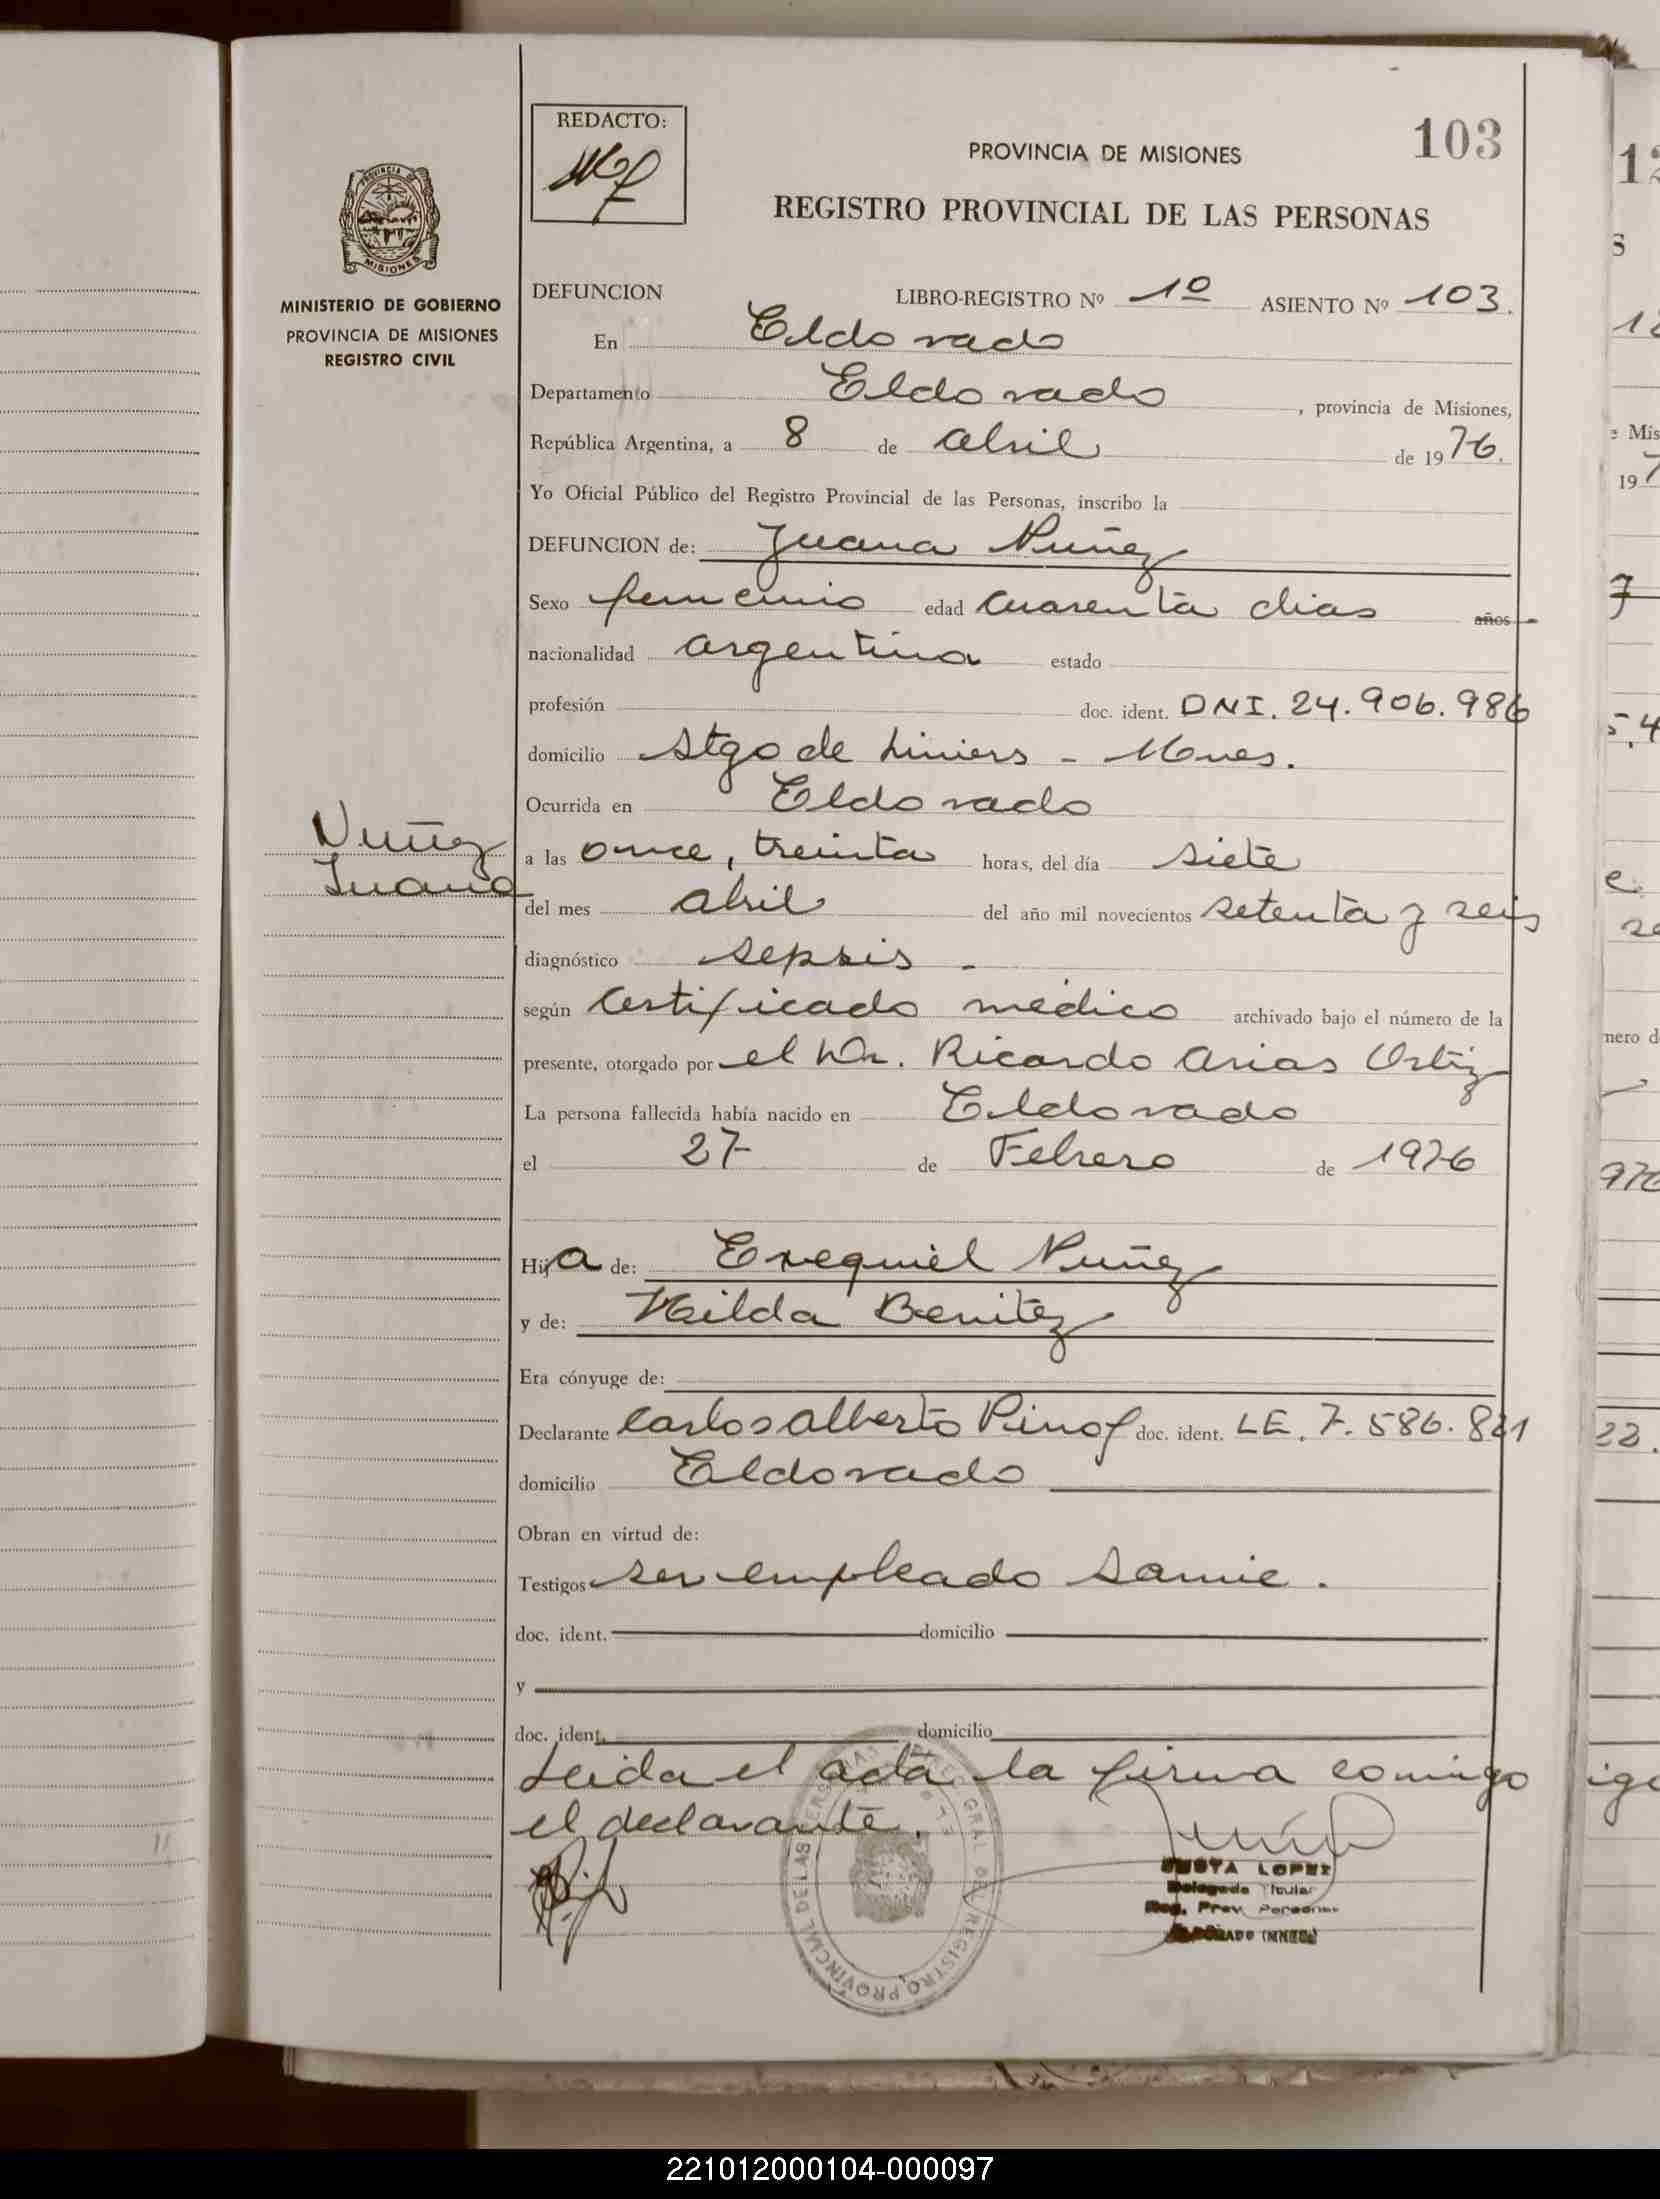 REDACTO:
103
PROVINCIA DE MISIONES
REGISTRO PROVINCIAL DE LAS PERSONAS
PROVINCIA DE
MISIONES
MINISTERIO DE GOBIERNO
PROVINCIA DE MISIONES
REGISTRO CIVIL
DEFUNCION LIBRO-REGISTRO Nº 1º ASIENTO Nº 103.
En Eldorado
Departamento Eldorado, provincia de Misiones,
República Argentina, a 8 de abril de 1976.
Yo Oficial Público del Registro Provincial de las Personas, inscribo la
DEFUNCION de: Juana Nuñez
Sexo femenino edad cuarenta dias años
nacionalidad argentina estado
profesión doc. ident. DNI. 24.906.986
domicilio Stgo de Liniers - Mnes.
Ocurrida en Eldorado
Nuñez
Juana
a las once, treinta horas, del día siete
del mes abril del año mil novecientos setenta y seis
diagnóstico sepsis -
según certificado médico archivado bajo el número de la
presente, otorgado por el Dr. Ricardo Arias Ortiz
La persona fallecida había nacido en Eldorado
el 27 de Febrero de 1976
Hija de: Exequiel Nuñez
y de: Hilda Benitez
Era cónyuge de:
Declarante Carlos Alberto doc. ident. LE. 7.586.821
domicilio Eldorado
Obran en virtud de:
Testigos ser empleado
doc. ident. domicilio
y
doc. ident. domicilio
Leida el acta la firma comigo
el declarante.
LOPEZ
Delegada Titular
Reg. Prov. Personas
ELDORADO (MNES)
221012000104-000097